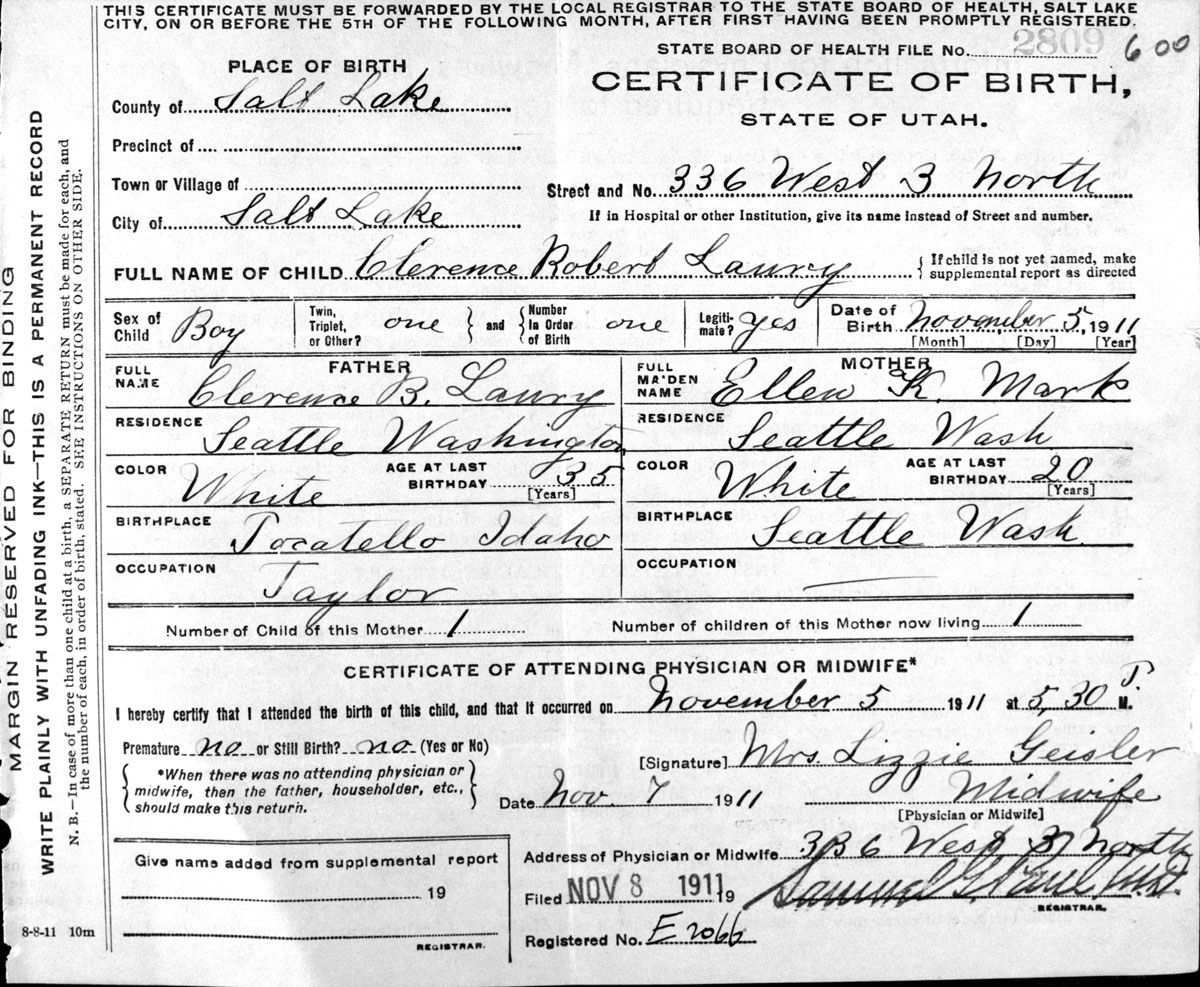 THIS CERTIFICATE MUST BE FORWARDED BY THE LOCAL REGISTRAR TO THE STATE BOARD OF HEALTH, SALT LAKE
CITY, ON OR BEFORE THE 5TH OF THE FOLLOWING MONTH, AFTER FIRST HAVING BEEN PROMPTLY REGISTERED.
STATE BOARD OF HEALTH FILE No. 2809 600
PLACE OF BIRTH
CERTIFICATE OF BIRTH,
County of Salt Lake
STATE OF UTAH.
Precinct of
Town or Village of
Street and No. 336 West 3 North
City of Salt Lake
If in Hospital or other Institution, give its name instead of Street and number.
FULL NAME OF CHILD Clerence Robert Laury
If child is not yet named, make
supplemental report as directed
Sex of Child Boy
Twin, Triplet, or Other? one
and
Number In Order of Birth one
Legiti-mate? Yes
Date of Birth November 5, 1911
[Month] [Day] [Year]
FATHER
FULL NAME Clerence B. Laury
RESIDENCE Seattle Washington
COLOR White
AGE AT LAST BIRTHDAY 35
[Years]
BIRTHPLACE Pocatello Idaho
OCCUPATION Taylor
MOTHER
FULL MAIDEN NAME Ellen K. Mark
RESIDENCE Seattle Wash
COLOR White
AGE AT LAST BIRTHDAY 20
[Years]
BIRTHPLACE Seattle Wash
OCCUPATION
Number of Child of this Mother 1
Number of children of this Mother now living 1
CERTIFICATE OF ATTENDING PHYSICIAN OR MIDWIFE*
I hereby certify that I attended the birth of this child, and that it occurred on November 5 1911 at 5,30 P. M.
Premature no or Still Birth? no (Yes or No)
[Signature] Mrs. Lizzie Geisler
*When there was no attending physician or
midwife, then the father, householder, etc.,
should make this return.
Date Nov. 7 1911
Midwife
[Physician or Midwife]
Give name added from supplemental report
19
REGISTRAR.
Address of Physician or Midwife 336 West 3 North
Filed NOV 8 1911 19
REGISTRAR.
Registered No. E 2066
8-8-11 10m
MARGIN RESERVED FOR BINDING
WRITE PLAINLY WITH UNFADING INK—THIS IS A PERMANENT RECORD
N. B.—In case of more than one child at a birth, a SEPARATE RETURN must be made for each, and
the number of each, in order of birth, stated. SEE INSTRUCTIONS ON OTHER SIDE.